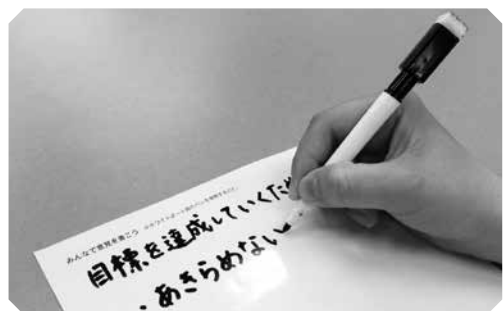 みんなで意見を書こう
目標を達成していくため
・あきらめない